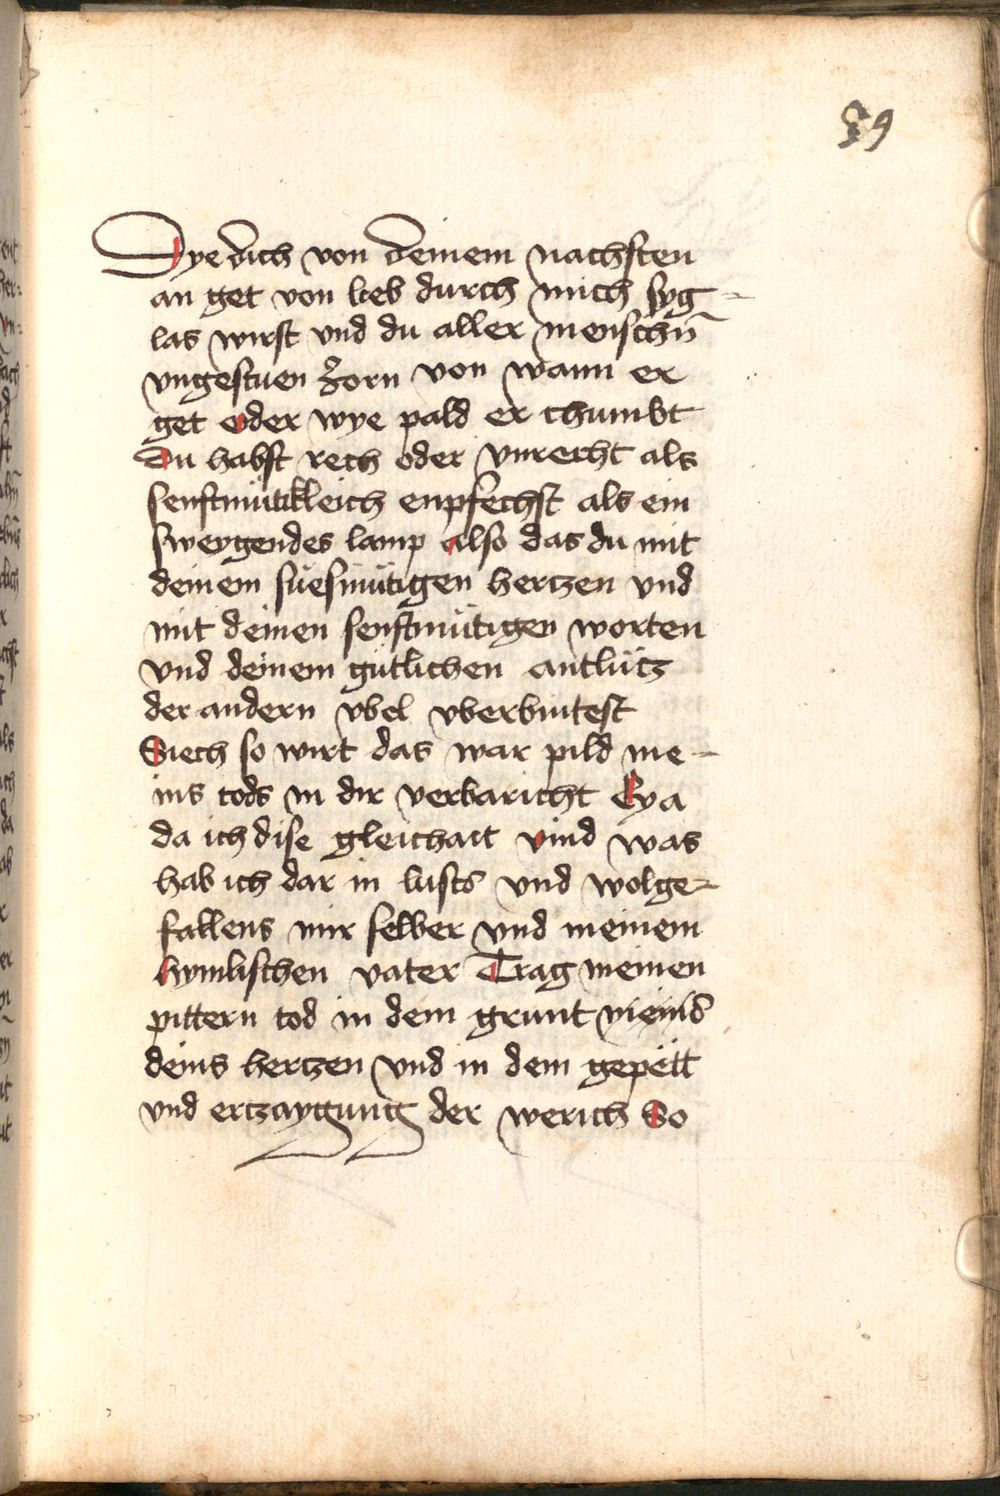 39
Dye dich von deinem nachsten
an get von lieb durch mich syg-
las wirst vnd du aller menschn̄
vngestuen zorn von wann er
get oder wye pald er chumbt
Du habst rech oder vnrecht als
senftmütikleich enpfechst als ein
sweygendes lamp also das du mit
deinem süesmütigen hertzen vnd
mit deinen senftmütigen worten
vnd deinem gütlichen antlütz
der andern vbel vberbintest
Siech so wirt das war pild me-
ins tods in dir verbaricht Eya
da ich dise gleichait vind was
hab ich dar in lusts vnd wolge-
fallens mir selber vnd meinem
hymlischen vater Trag meinen
pittern tod in dem grunt
deins hertzen vnd in dem gepett
vnd ertzaygung der werich So